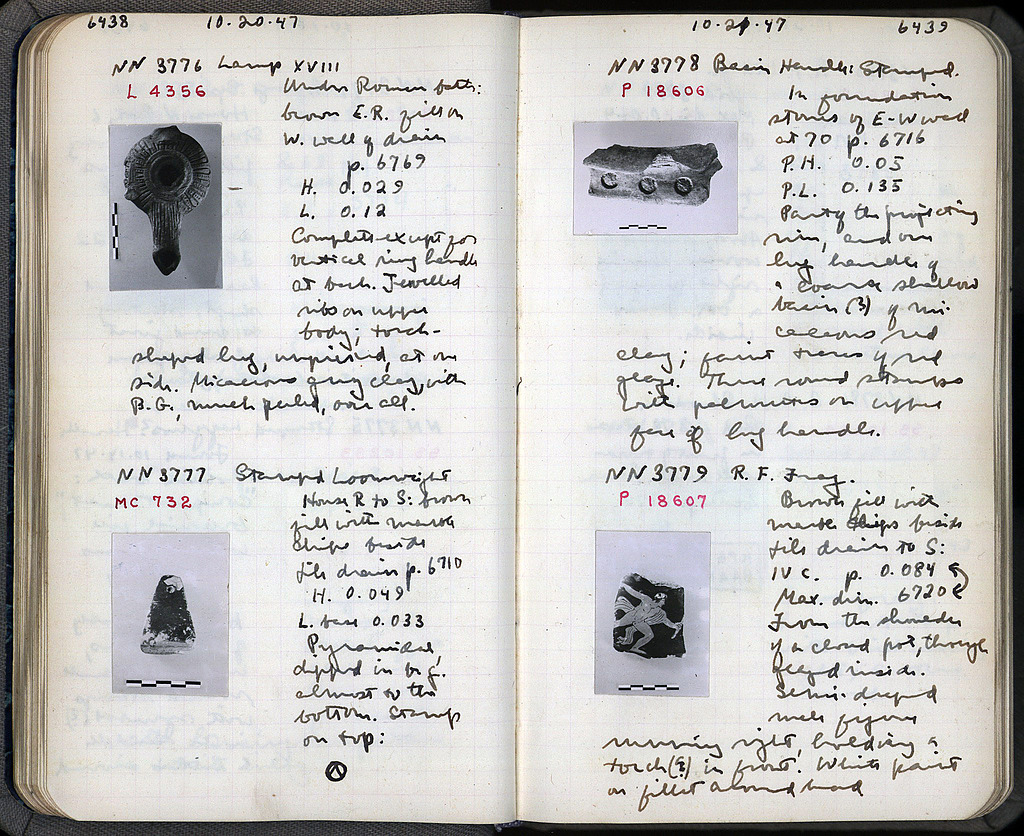 6438 10·20·47
NN 3776 Lamp XVIII
L 4356
Under Roman bath:
brown E.R. fill on
W. wall of drain
p. 6769
H. 0.029
L. 0.12
Complete except for
vertical ring handle
at back. Jewelled
ribs on upper
body; torch-
shaped lug, unpierced, at one
side. Micaceous grey clay, with
B.G., much peeled, over all.
NN 3777 Stamped Loomweight
MC 732
House R to S: brown
fill with marble
chips beside
tile drain p. 6710
H. 0.049
L. base 0.033
Pyramidal,
dipped in b.g.
almost to the
bottom. Stamp
on top:
10·21·47 6439
NN 3778 Basin Handle: Stamped.
P 18606
In foundation
stones of E-W wall
at 70 p. 6716
P.H. 0.05
P.L. 0.135
Part of the projecting
rim, and one
lug handle of
a coarse shallow
basin (?) of mi-
caceous red
clay; faint traces of red
glaze. Three round stamps
with palmettes on upper
face of lug handle.
NN 3779 R. F. Frag.
P 18607
Brown fill with
marble chips beside
tile drain to S:
IV c. p. 0.084
Max. dim. 6720
From the shoulder
of a closed pot, through
glazed inside.
Semi-draped
male figure
running right, holding a
torch (?) in front. White paint
on fillet around head